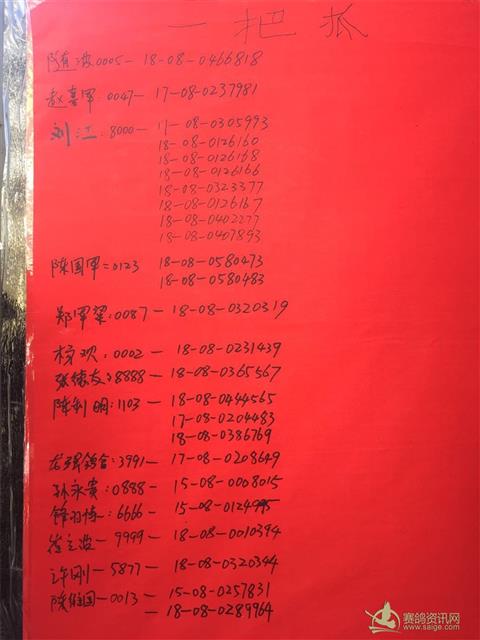 一把抓
陈有波0005-18-08-0466818
赵喜军 0047-17-08-0237981
刘江:8000-17-08-0305993
18-08-0126160
18-08-0126168
18-08-0126166
18-08-0323377
18-08-0126167
18-08-0402277
18-08-0407893
陈国军:0123 18-08-0580473
18-08-0580483
郑军梁:0087-18-08-0320319
杨欢:0002-18-08-0231439
张德友:8888-18-08-0365567
陈利明:1103-18-08-0444565
17-08-0204483
18-08-0386769
龙翔鸽舍:3991-17-08-0208649
孙永贵:0888-15-08-0008015
锋羽情:6666-15-08-0124995
崔立波-9999-18-08-0010394
许刚-5877-18-08-0320344
陈维国-0013-15-08-0257831
-18-08-0289964
赛鸽资讯网
www.saige.com